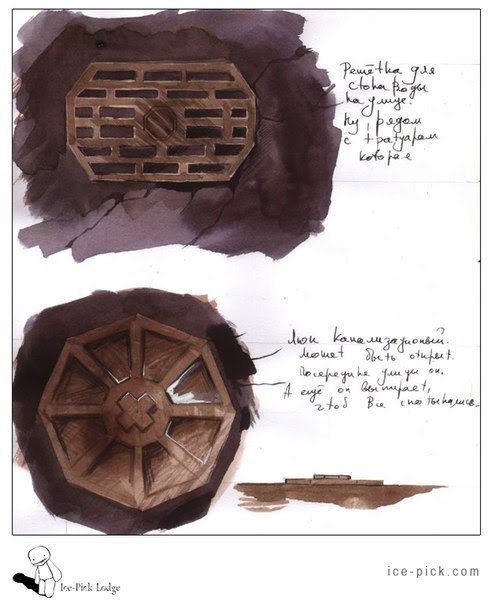 Решётка для
стока воды
на улице.
Ну рядом
с тратуаром
которая
Люк канализационный.
Может быть открыт.
Посередине улицы он.
А ещё он выпирает,
чтоб все спотыкались.
Ice-Pick Lodge
ice-pick.com